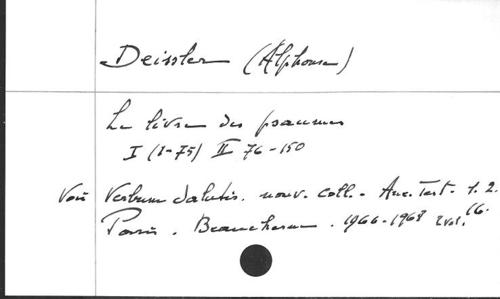 Deissler (Alphonse)
Le livre des psaumes
I (1-75) II 76-150
Voir Verbum Salutis. nouv. coll. - Anc. Test. 1. 2.
Paris. Beauchesne. 1966-1968 2 vol. 16.